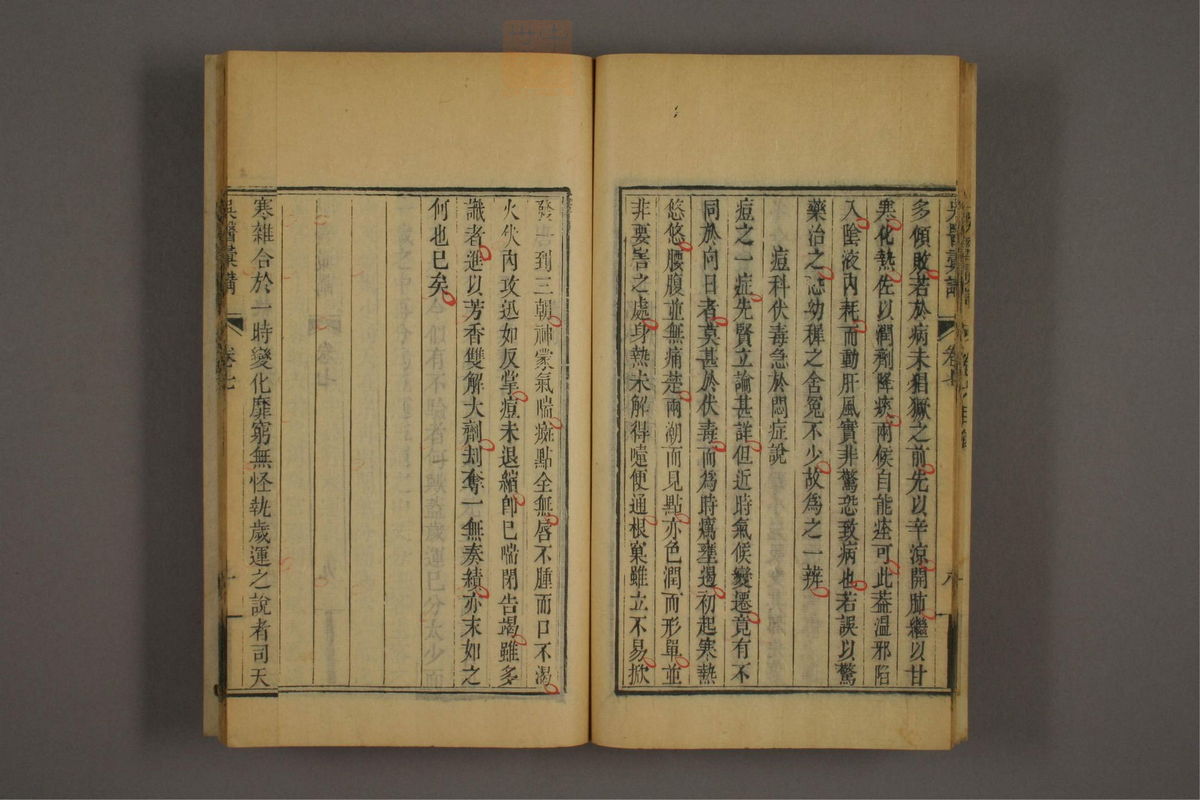 多傾敗若於病未猖獗之前先以辛涼開肺繼以甘
寒化熱佐以潤劑降痰兩候自能痊可此蓋溫邪陷
入陰液內耗而動肝風實非驚恐致病也若誤以驚
藥治之恐幼稺之含冤不少故為之一辨
痘科伏毒急於悶症說
痘之一症先賢立論甚詳但近時氣候變遷竟有不
同於向日者莫甚於伏毒而爲時癘壅遏初起寒熱
悠悠腰腹並無痛楚兩潮而見點亦色潤而形單並
非要害之處身熱未解得嚏便通根窠雖立不易掀
發 到三朝神蒙氣喘癍點全無唇不腫而口不渴
火伏內攻迅如反掌痘未退縮卽已喘閉告竭雖多
識者進以芳香雙解大劑刦奪一無奏績亦末如之
何也已矣
寒雜合於一時變化靡窮無怪執歲運之說者司天
吳醫彙講
卷七